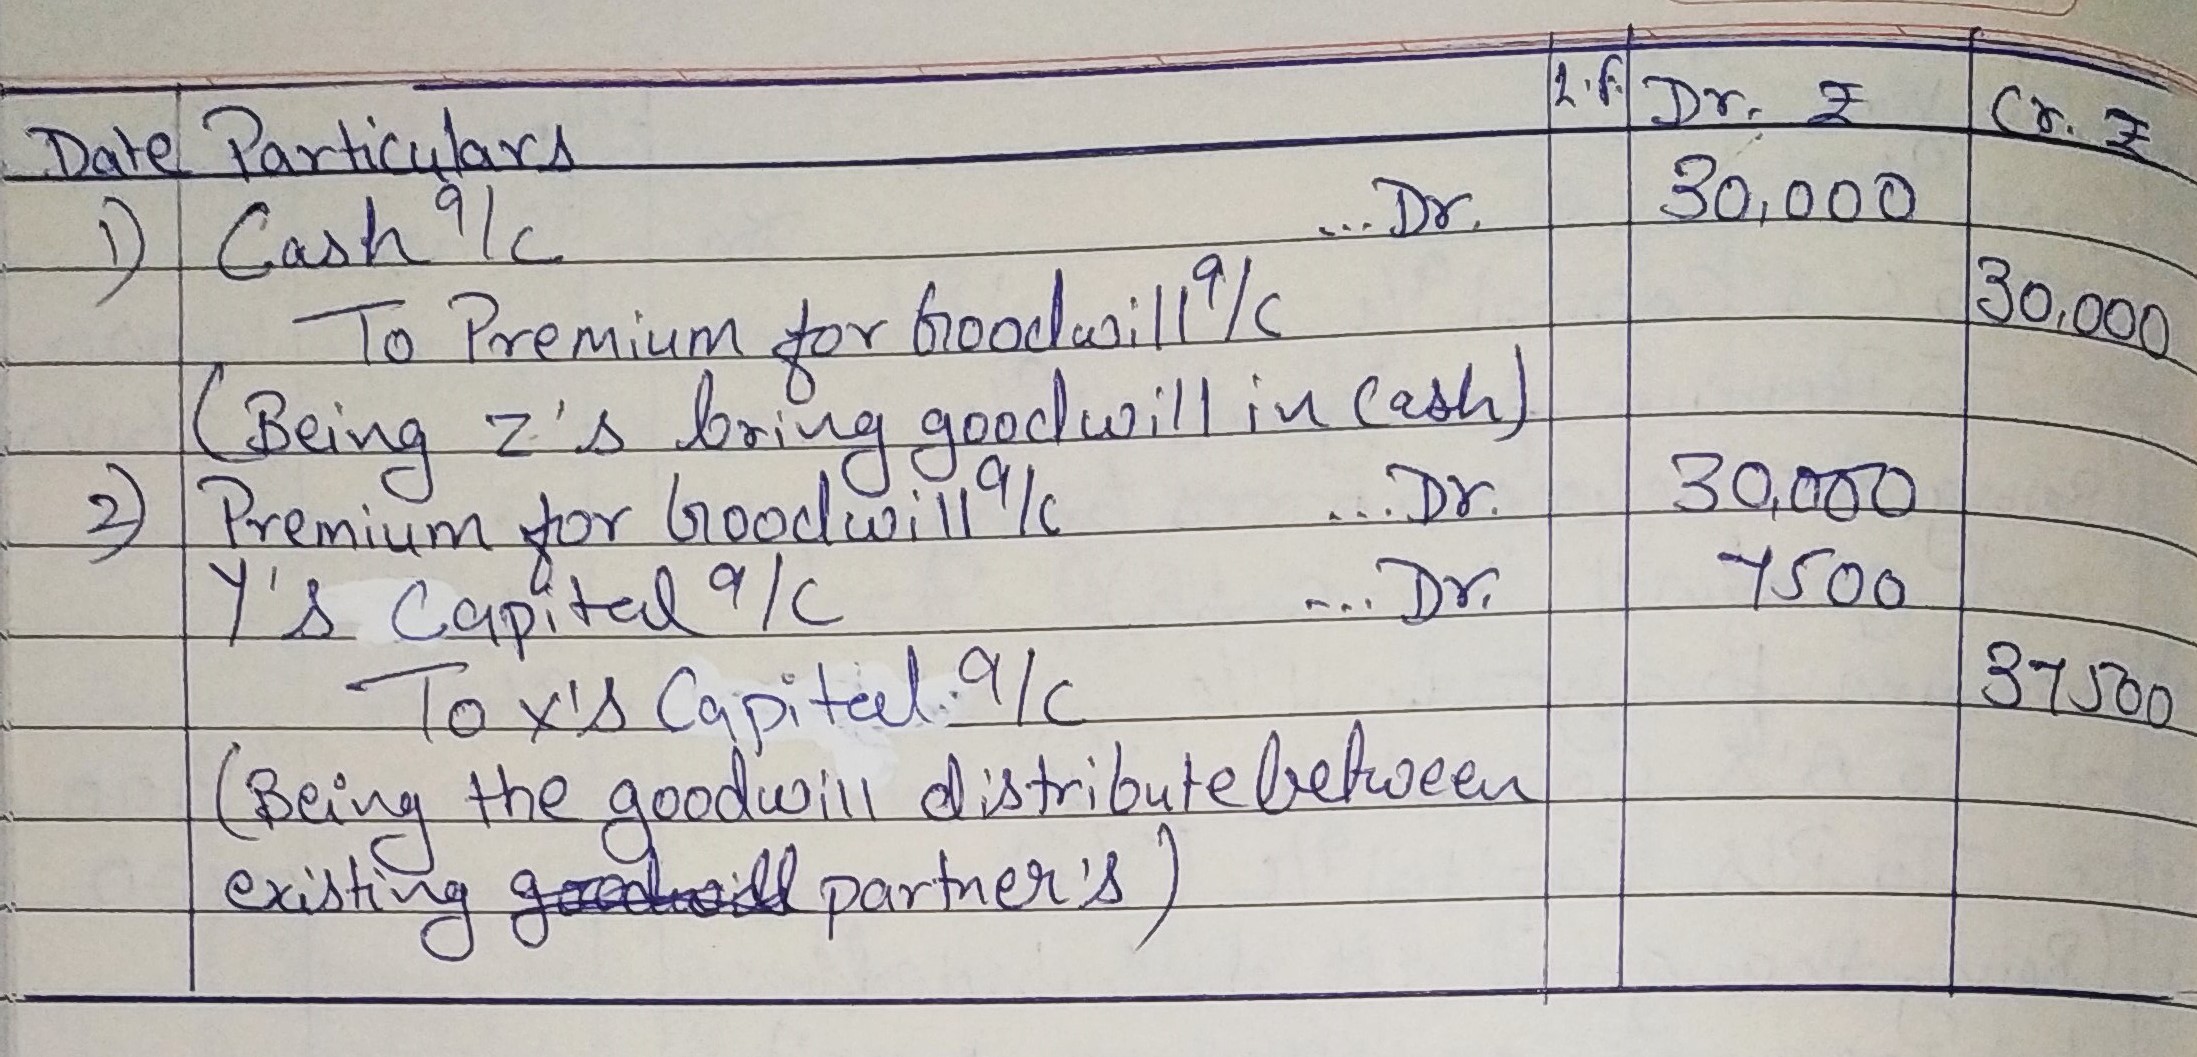 Date Particulars L.F. Dr. ₹ Cr. ₹
1) Cash a/c ... Dr. 30,000
To Premium for Goodwill a/c 30,000
(Being z's bring goodwill in Cash)
2) Premium for Goodwill a/c ... Dr. 30,000
Y's Capital a/c ... Dr. 7500
To x's Capital a/c 37500
(Being the goodwill distribute between
existing goodwill partner's)